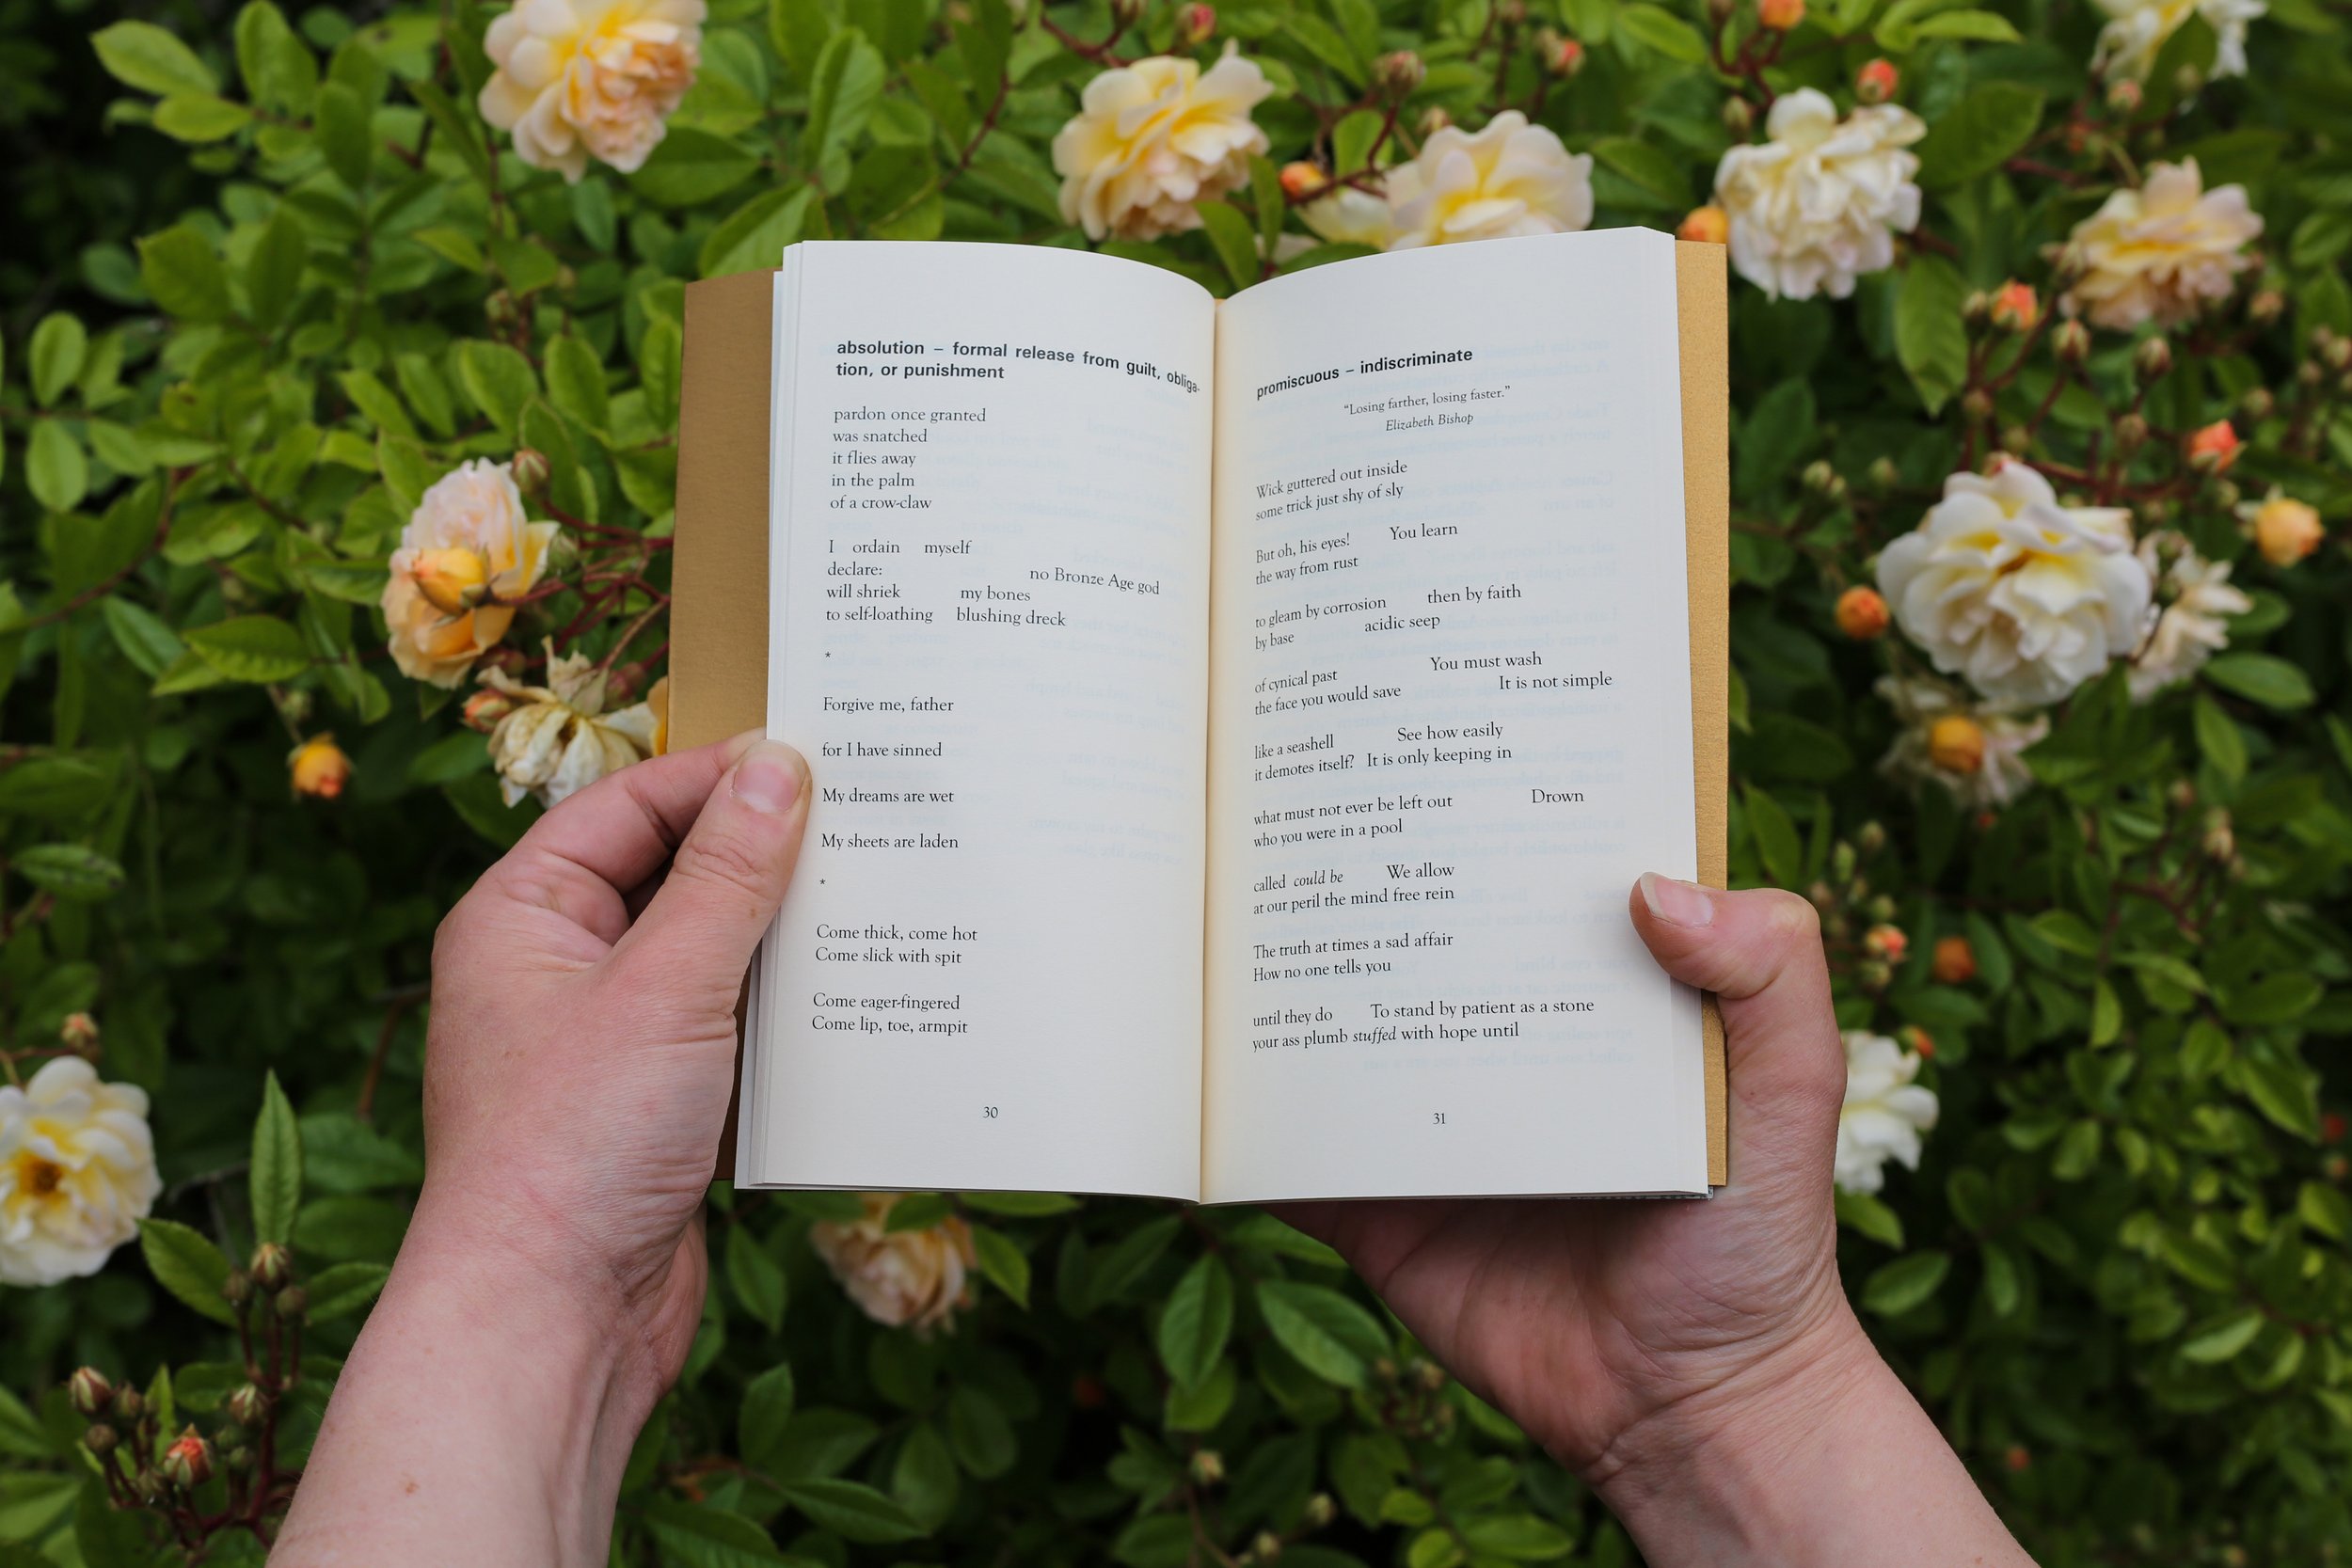 absolution – formal release from guilt, obliga-
tion, or punishment
pardon once granted
was snatched
it flies away
in the palm
of a crow-claw
I ordain myself
declare: no Bronze Age god
will shriek my bones
to self-loathing blushing dreck
*
Forgive me, father
for I have sinned
My dreams are wet
My sheets are laden
*
Come thick, come hot
Come slick with spit
Come eager-fingered
Come lip, toe, armpit
30
promiscuous – indiscriminate
“Losing farther, losing faster.”
Elizabeth Bishop
Wick guttered out inside
some trick just shy of sly
But oh, his eyes! You learn
the way from rust
to gleam by corrosion then by faith
by base acidic seep
of cynical past You must wash
the face you would save It is not simple
like a seashell See how easily
it demotes itself? It is only keeping in
what must not ever be left out Drown
who you were in a pool
called could be We allow
at our peril the mind free rein
The truth at times a sad affair
How no one tells you
until they do To stand by patient as a stone
your ass plumb stuffed with hope until
31